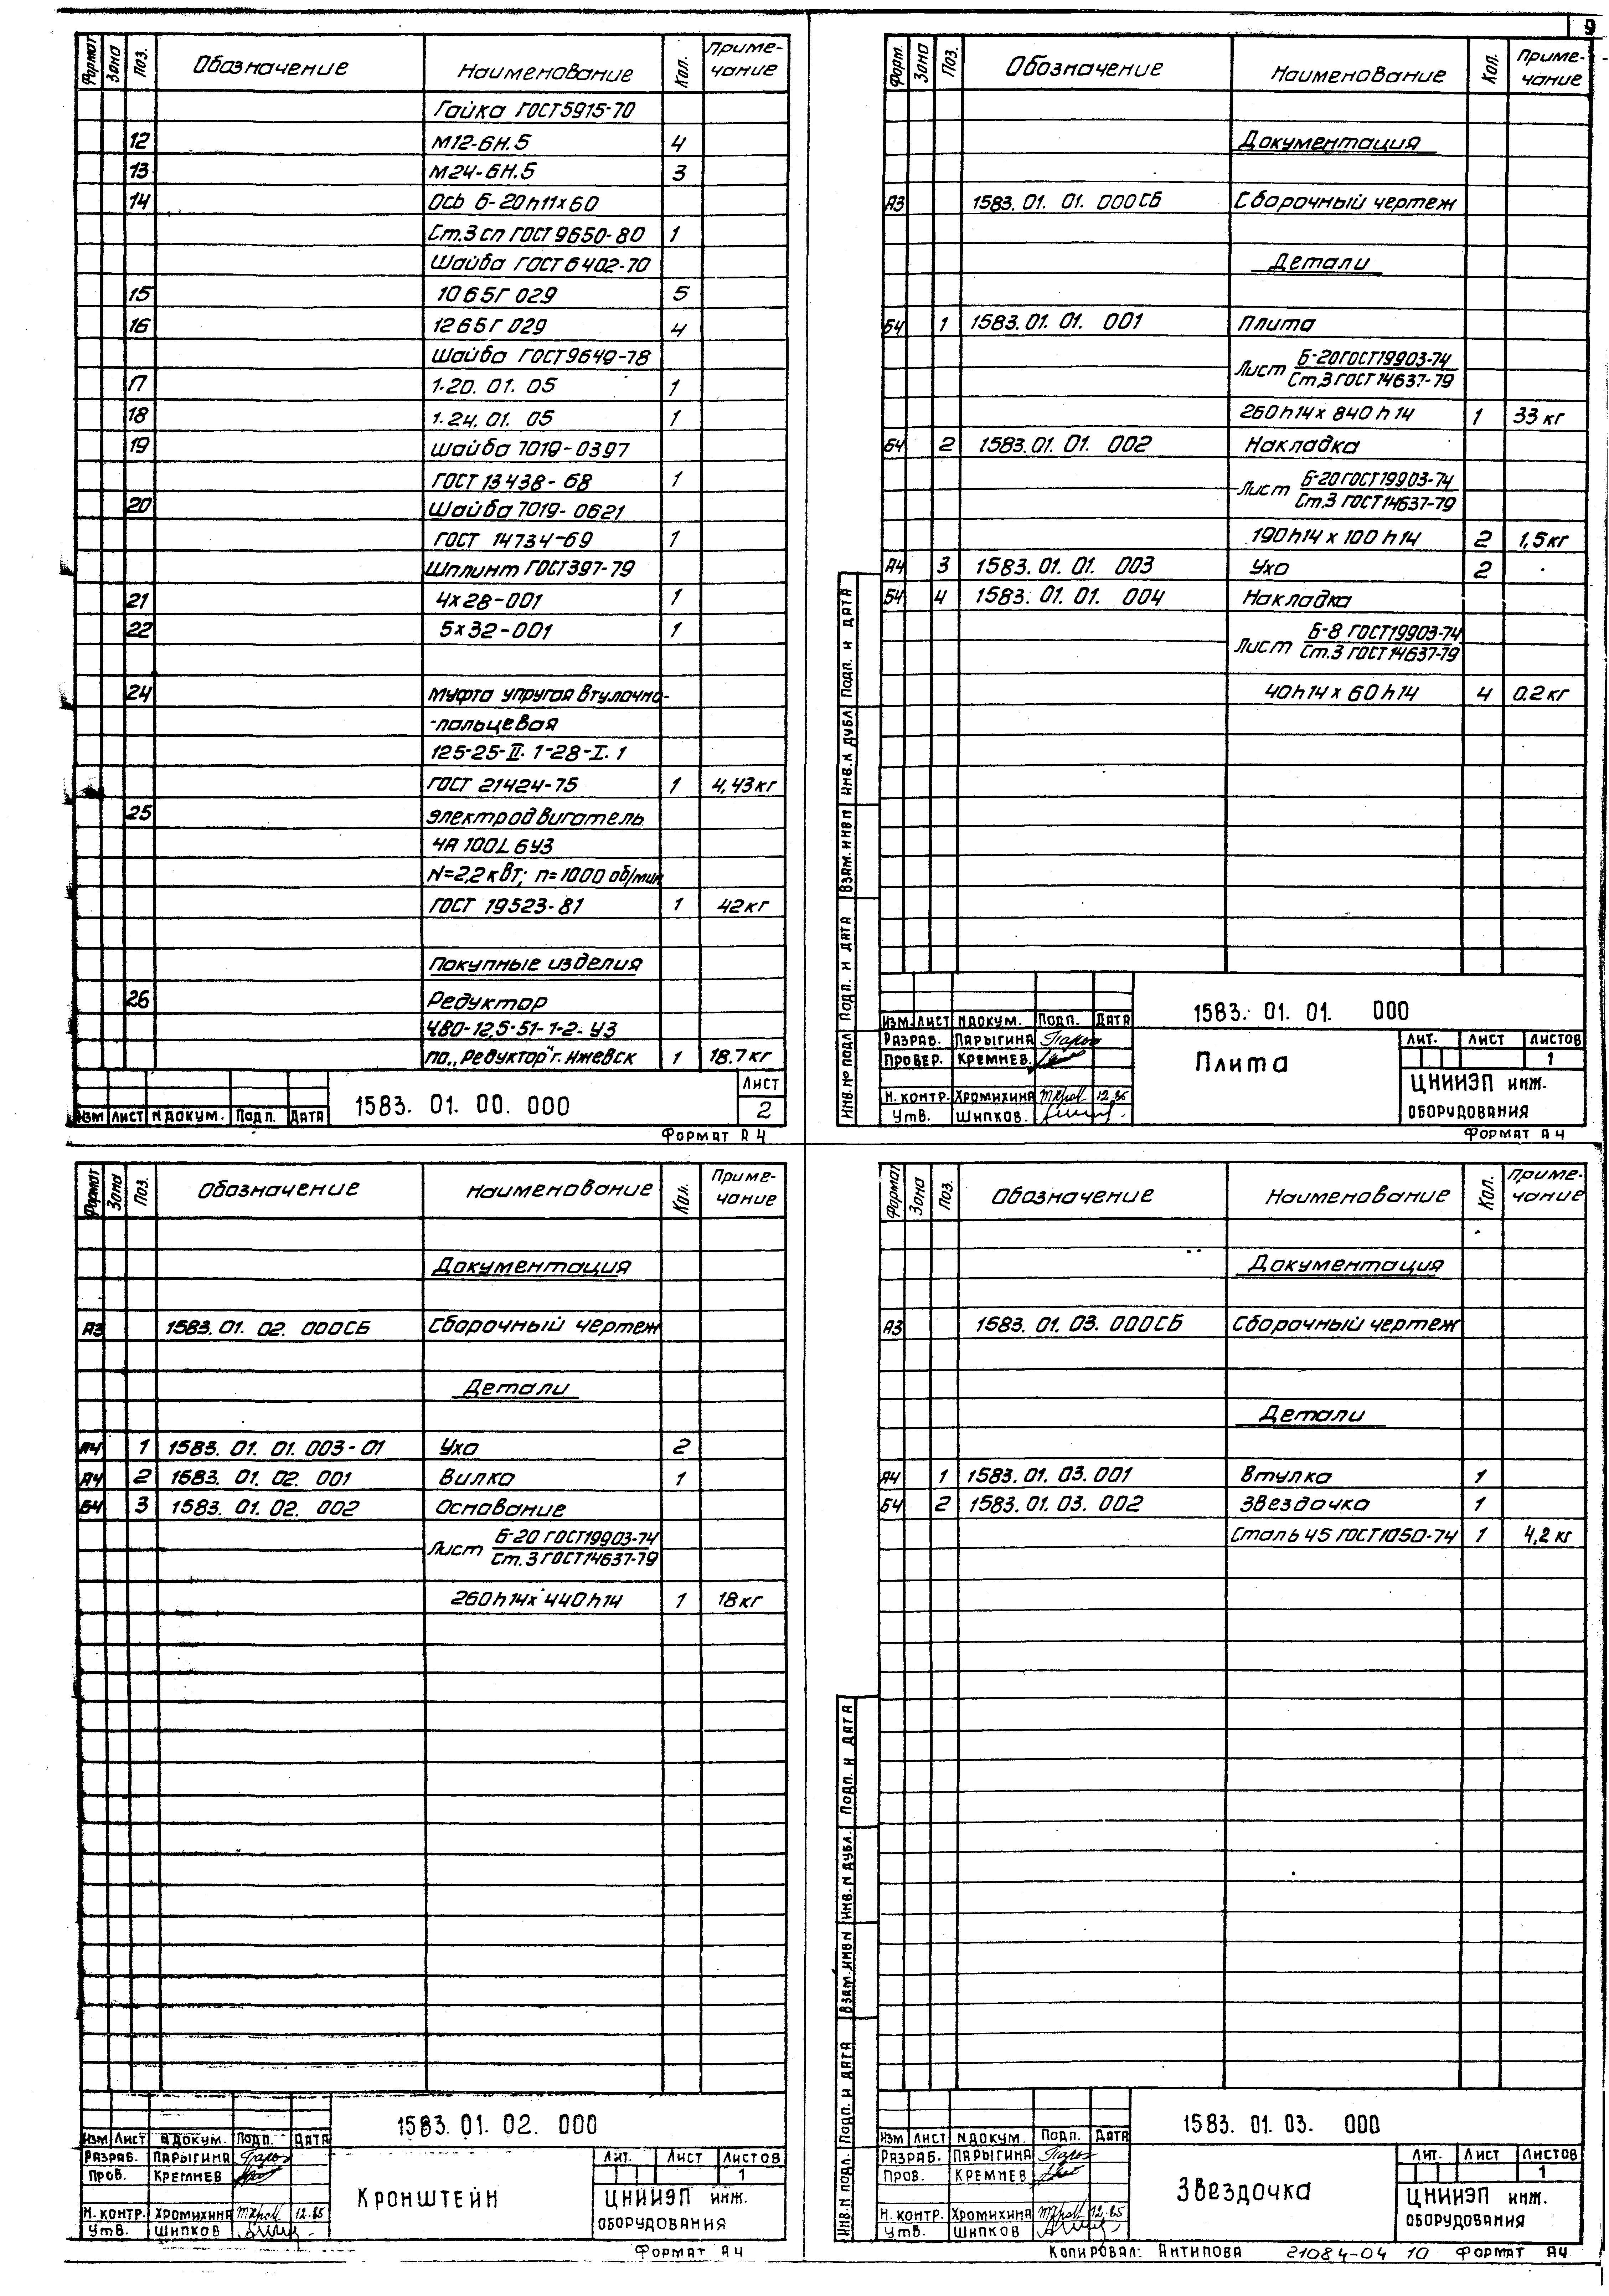 9
Формат Зона Поз. Обозначение Наименование Кол. Приме-
чание
Гайка ГОСТ 5915-70
12 М12-6Н.5 4
13 М24-6Н.5 3
14 Ось 6-20h11x60
Ст.3 сп ГОСТ 9650-80 1
Шайба ГОСТ 6402-70
15 10 65Г 029 5
16 12 65Г 029 4
Шайба ГОСТ 9649-78
17 1.20. 01. 05 1
18 1.24. 01. 05 1
19 Шайба 7019-0397
ГОСТ 13438-68 1
20 Шайба 7019-0621
ГОСТ 14734-69 1
Шплинт ГОСТ 397-79
21 4x28-001 1
22 5x32-001 1
24 Муфта упругая втулочно-
-пальцевая
125-25-II. 1-28-I. 1
ГОСТ 21424-75 1 4,43кг
25 Электродвигатель
4А 100L 6У3
N=2,2квт; n=1000 об/мин
ГОСТ 19523-81 1 42кг
Покупные изделия
26 Редуктор
Ч80-12,5-51-1-2-У3
по „Редуктор" г. Ижевск 1 18.7кг
Изм Лист N докум. Подп. Дата
1583. 01. 00. 000
Лист
2
Формат А4
Форм. Зона Поз. Обозначение Наименование Кол. Приме-
чание
Документация
А3 1583. 01. 01. 000СБ Сборочный чертеж
Детали
Б4 1 1583. 01. 01. 001 Плита
Лист Б-20 ГОСТ 19903-74
Ст.3 ГОСТ 14637-79
260h14 x 840h14 1 33кг
Б4 2 1583. 01. 01. 002 Накладка
Лист Б-20 ГОСТ 19903-74
Ст.3 ГОСТ 14637-79
190h14 x 100h14 2 1,5кг
А4 3 1583. 01. 01. 003 Ухо 2
Б4 4 1583. 01. 01. 004 Накладка
Лист Б-8 ГОСТ 19903-74
Ст.3 ГОСТ 14637-79
40h14 x 60h14 4 0.2кг
Инв. № подл Подп. и дата Взам. инв N Инв. N дубл Подп. и дата
Изм. Лист N докум. Подп. Дата
Разраб. Парыгина
Провер. Кремнев.
Н. контр. Хромихина 12.85
Утв. Шипков.
1583. 01. 01. 000
Плита
Лит. Лист Листов
1
ЦНИИЭП инж.
оборудования
Формат А4
Формат Зона Поз. Обозначение Наименование Кол. Приме-
чание
Документация
А3 1583. 01. 02. 000СБ Сборочный чертеж
Детали
А4 1 1583. 01. 01. 003-01 Ухо 2
А4 2 1583. 01. 02. 001 Вилка 1
Б4 3 1583. 01. 02. 002 Основание
Лист Б-20 ГОСТ 19903-74
Ст.3 ГОСТ 14637-79
260h14x 440h14 1 18кг
Изм Лист N докум. Подп. Дата
Разраб. Парыгина
Пров. Кремнев
Н. контр. Хромихина 12.85
Утв. Шипков
1583. 01. 02. 000
Кронштейн
Лит. Лист Листов
1
ЦНИИЭП инж.
оборудования
Формат А4
Формат Зона Поз. Обозначение Наименование Кол. Приме-
чание
Документация
А3 1583. 01. 03. 000СБ Сборочный чертеж
Детали
А4 1 1583. 01. 03. 001 Втулка 1
Б4 2 1583. 01. 03. 002 Звездочка 1
Сталь 45 ГОСТ 1050-74 1 4,2кг
Инв. N подл. Подп. и дата Взам. инв N Инв. N дубл. Подп. и дата
Изм Лист N докум. Подп. Дата
Разраб. Парыгина
Пров. Кремнев
Н. контр. Хромихина 12.85
Утв. Шипков
1583. 01. 03. 000
Звездочка
Лит. Лист Листов
1
ЦНИИЭП инж.
оборудования
Копировал: Антипова 21084-04 10 Формат А4